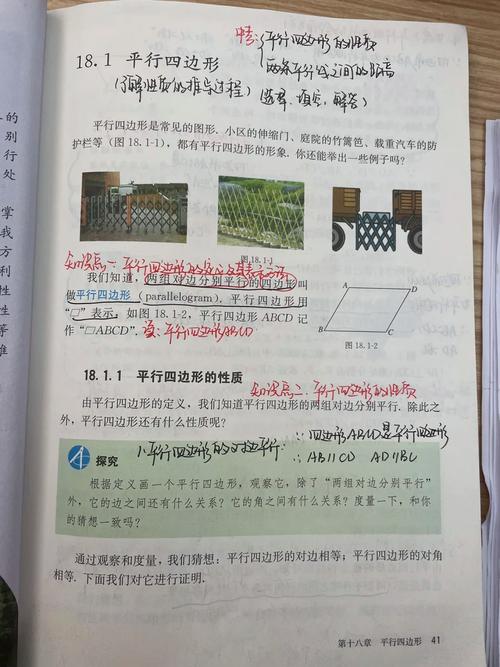 考点：平行四边形的性质
18.1 平行四边形
两条平行线之间的距离
(了解性质的推导过程) (选择、填空、解答)
平行四边形是常见的图形. 小区的伸缩门、庭院的竹篱笆、载重汽车的防
护栏等 (图 18.1-1), 都有平行四边形的形象. 你还能举出一些例子吗?
图 18.1-1
知识点一：平行四边形的定义及其表示方法
我们知道, 两组对边分别平行的四边形叫
做平行四边形 (parallelogram). 平行四边形用
“□” 表示, 如图 18.1-2, 平行四边形 ABCD 记
作 “□ABCD”.
读：平行四边形ABCD
A
D
B
C
图 18.1-2
18.1.1 平行四边形的性质
知识点二：平行四边形的性质
由平行四边形的定义, 我们知道平行四边形的两组对边分别平行. 除此之
外, 平行四边形还有什么性质呢?
1.平行四边形的对边平行
∵四边形ABCD是平行四边形
∴AB∥CD AD∥BC
探究
根据定义画一个平行四边形, 观察它, 除了 “两组对边分别平行”
外, 它的边之间还有什么关系? 它的角之间有什么关系? 度量一下, 和你
的猜想一致吗?
通过观察和度量, 我们猜想: 平行四边形的对边相等; 平行四边形的对角
相等. 下面我们对它进行证明.
第十八章 平行四边形 41